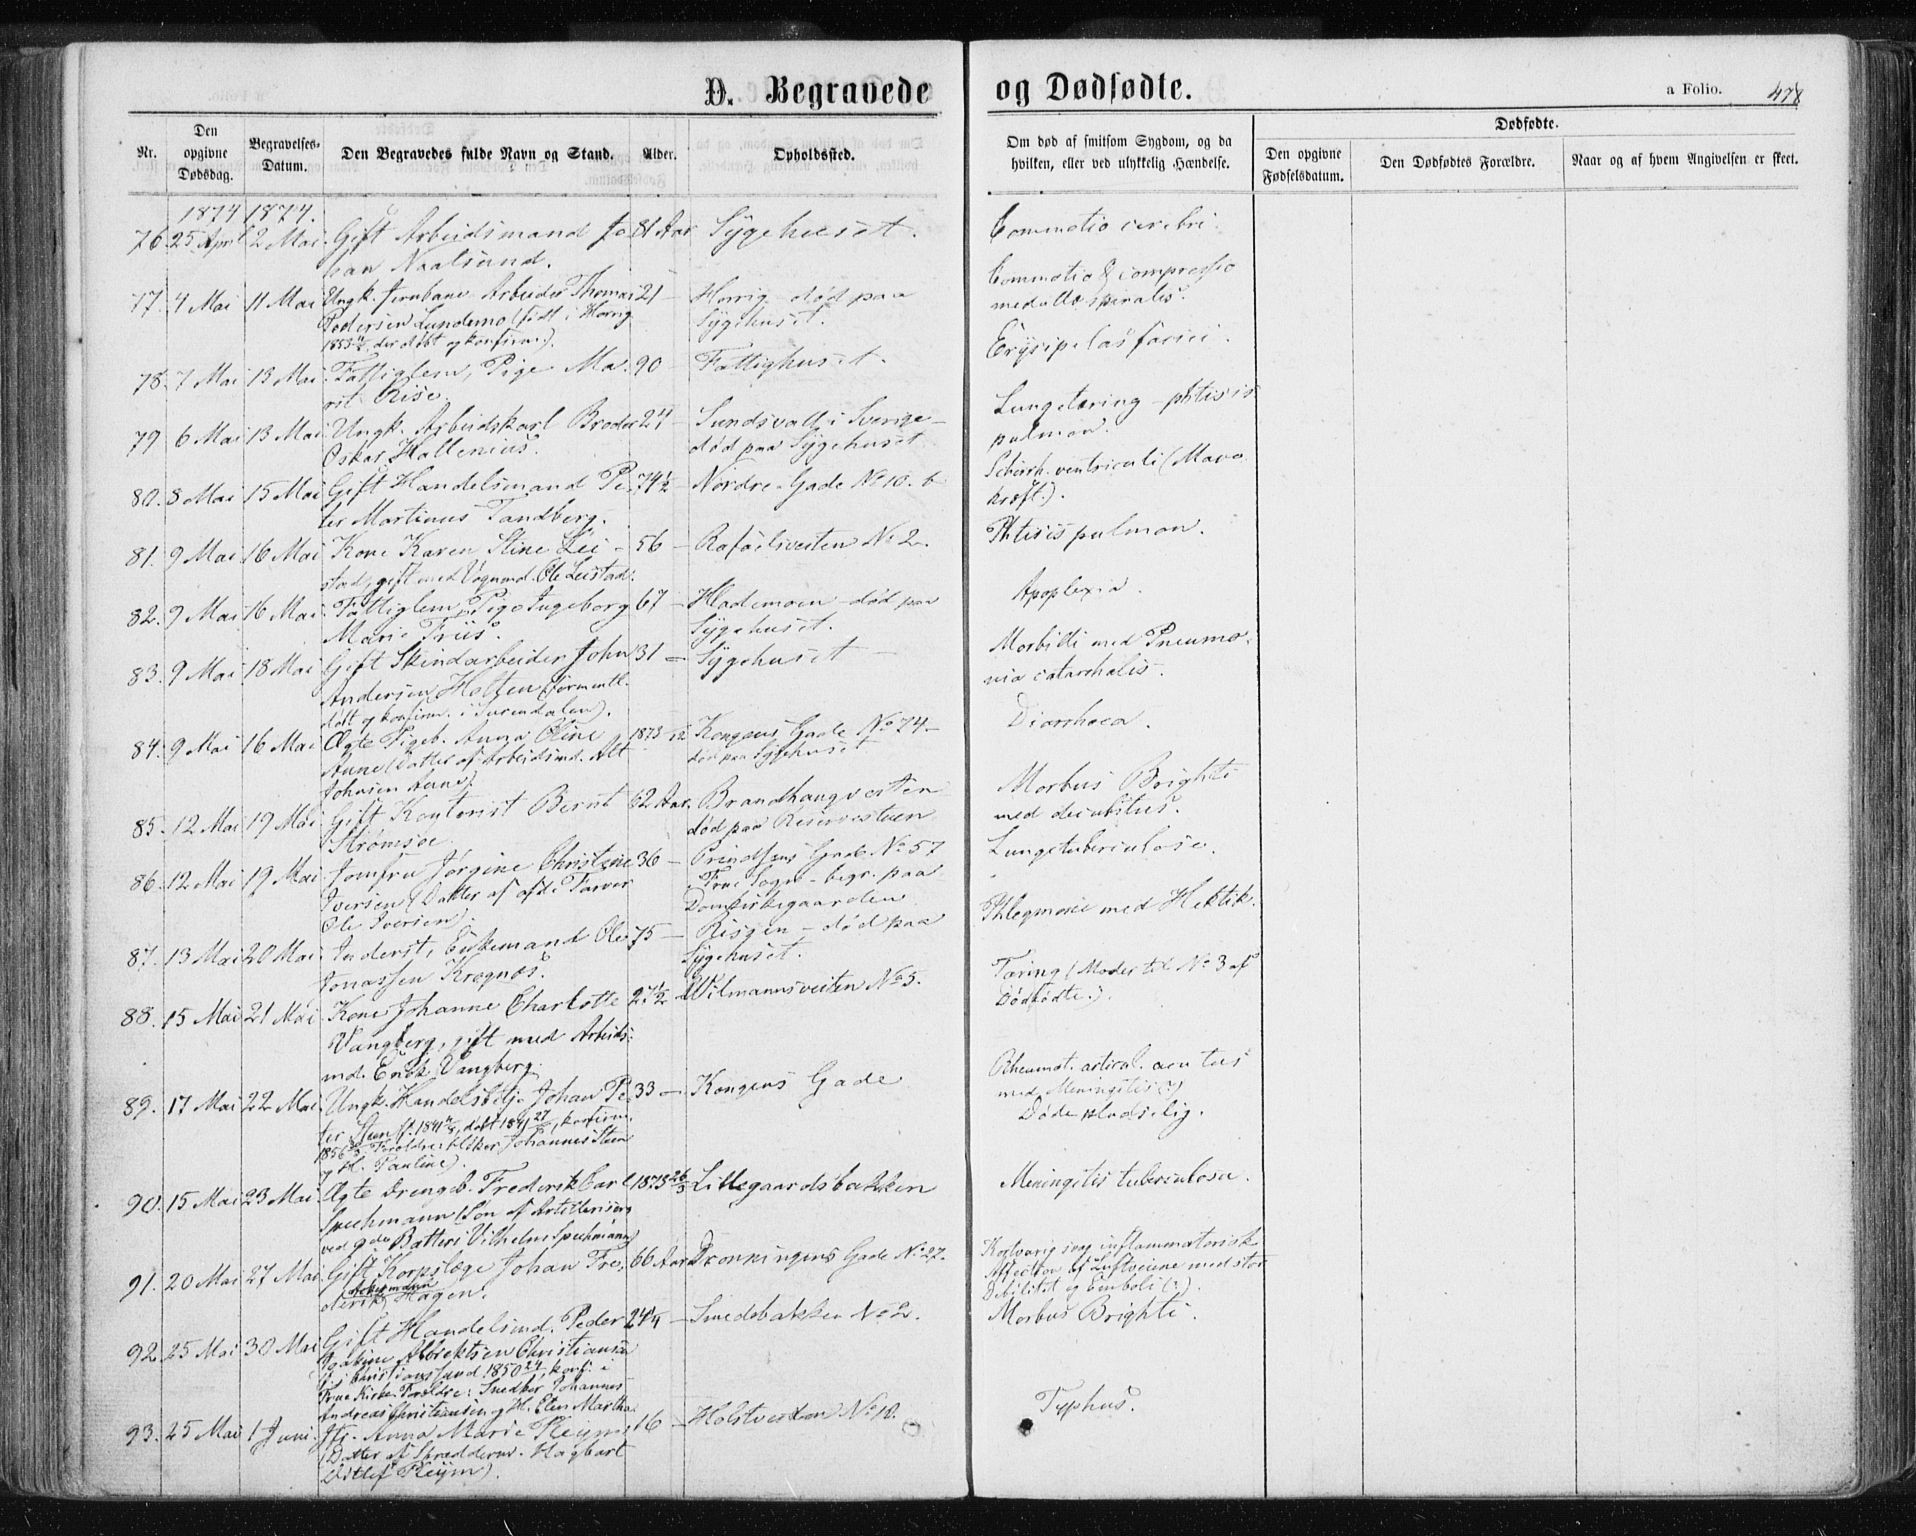 D. Begravede og Dødfødte.
a Folio. 478
Nr.
Den opgivne Dødsdag.
Begravelses-Datum.
Den Begravedes fulde Navn og Stand.
Alder.
Opholdssted.
Om død af smitsom Sygdom, og da hvilken, eller ved ulykkelig Hændelse.
Dødfødte.
Den opgivne Fødselsdatum.
Den Dødfødtes Forældre.
Naar og af hvem Angivelsen er skeet.
1874 1874.
76. 25 April 2 Mai. Gift Arbeidsmand Jo 81 Aar Sygehuset. Commotio cerebri.
han Naalsund.
77. 4 Mai 11 Mai Ungk. Jernbane Arbeider Thomas 21 – Horrig død paa Commotio & compressio
Pedersen Lundemo (født i Horrig Sygehuset. medulla spinalis.
1853 der døbt og konfirm).
78. 7 Mai 13 Mai. Fattiglem, Pige Ma. 90 – Fattighuset. Erysipelas faciei.
rit Rise.
79 6 Mai 13 Mai Ungk. Arbeidskarl Broder 24 – Sundsvall i Sverige – Lungetæring – phtisis
Oskar Hallenius. død paa Sygehuset pulmon.
80. 8 Mai 15 Mai Gift Handelsmand Pe 74 1/2 – Nordre Gade No 10. b Scirrh. ventriculi (Mave
ter Martinus Tandberg. kræft.).
81. 9 Mai 16 Mai Kone Karen Stine Lei – 56 – Rafaelsveiten No 2. Phtisis pulmon.
stad, gift med Vognmd. Ole Leistad.
82. 9 Mai 16 Mai. Fattiglem Pige Ingeborg 67 – Hademoen død paa Apoplexia.
Marie Friis. Sygehuset.
83. 9 Mai 18 Mai Gift Skindarbeider John 31 – Sygehuset – Morbilli med Pneumo
Andersen Holten (formentl. nia catarrhalis.
døbt og konfirm. i Surendalen).
84. 9 Mai 16 Mai Ægte Pigeb. Anna Oline 1873 Kongens Gade No 74 – Diarrhoea.
Aune (Datter af Arbeidsmd. Alt død paa Sygehuset
Johnsen Aune).
85. 12 Mai 19 Mai Gift Kontorist Bernt 62 Aar. Brandhaugveiten Morbus Brighti
Strømsøe død paa Reservestuen med decubitus.
86. 12 Mai 19 Mai Jomfru Jørgine Christine 36 – Prindsens Gade No 57 Lungetuberculose.
Iversen (Datter af afd. Farver Frue Sogn – begr. paa
Ole Iversen). Domkirkegaarden
87. 13 Mai 20 Mai. Inderst, Enkemand Ole 75 – Risgen – død paa Phlegmone med Hektik.
Jonassen Krognæs. Sygehuset.
88. 15 Mai 21 Mai Kone Johanne Charlotte 27 1/2 – Wilmannsveiten No 5. Tæring (Moder til No 3 af
Vangberg, gift med Arbeids: Dødfødte.).
md. Enok Vangberg.
89. 17 Mai 22 Mai. Ungk. Handelsbetj. Johan Pe 33 – Kongens Gade Rheumat. articul. acutus
ter Steen f. 1841, døbt 1841, konfirm. med Meningitis (?)
1856. Forældre: Johannes Steen Døde pludselig.
og H. Pauline).
90. 15 Mai 23 Mai. Ægte Drengeb. Frederik Carl 1873 26/3 Lillegaardsbakken Meningitis tuberculosa.
Spechmann (Søn af Artilleriserg
ved 9de Batteri Vilhelm Speckmann)
91. 20 Mai 27 Mai Gift Korpslæge Johan Fre, 66 Aar Dronningens Gade No 27. Kortvarig svag inflammatorisk
derik Hagen. Affection af Luftveiene med stor
Debilitet og Emboli (?).
92. 25 Mai 30 Mai Gift Handelsmd. Peder 24 1/4 – Smedbakken No 2. Morbus Brighti.
Joakim Albrektsen Christiansen
f. i Christianssund 1850, konf. i
Frue Kirke. Forældre: Johannes
Andreas Christiansen og H. Elen Martha.
93. 25 Mai 1 Juni. Jfr. Anna Marie Pleym 16 – Holstveiten No 10. Typhus.
(Datter af Skrædderm. Hagbart
Ditlef Pleym).